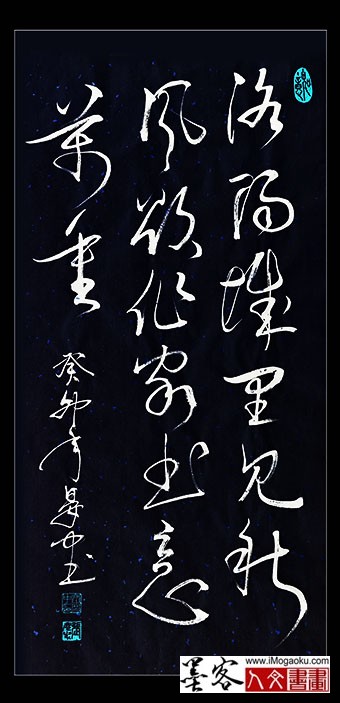 洛阳城里见秋
风欲作家书意
万重
癸卯年
书
墨客
www.iMogaoku.com
人文書畫